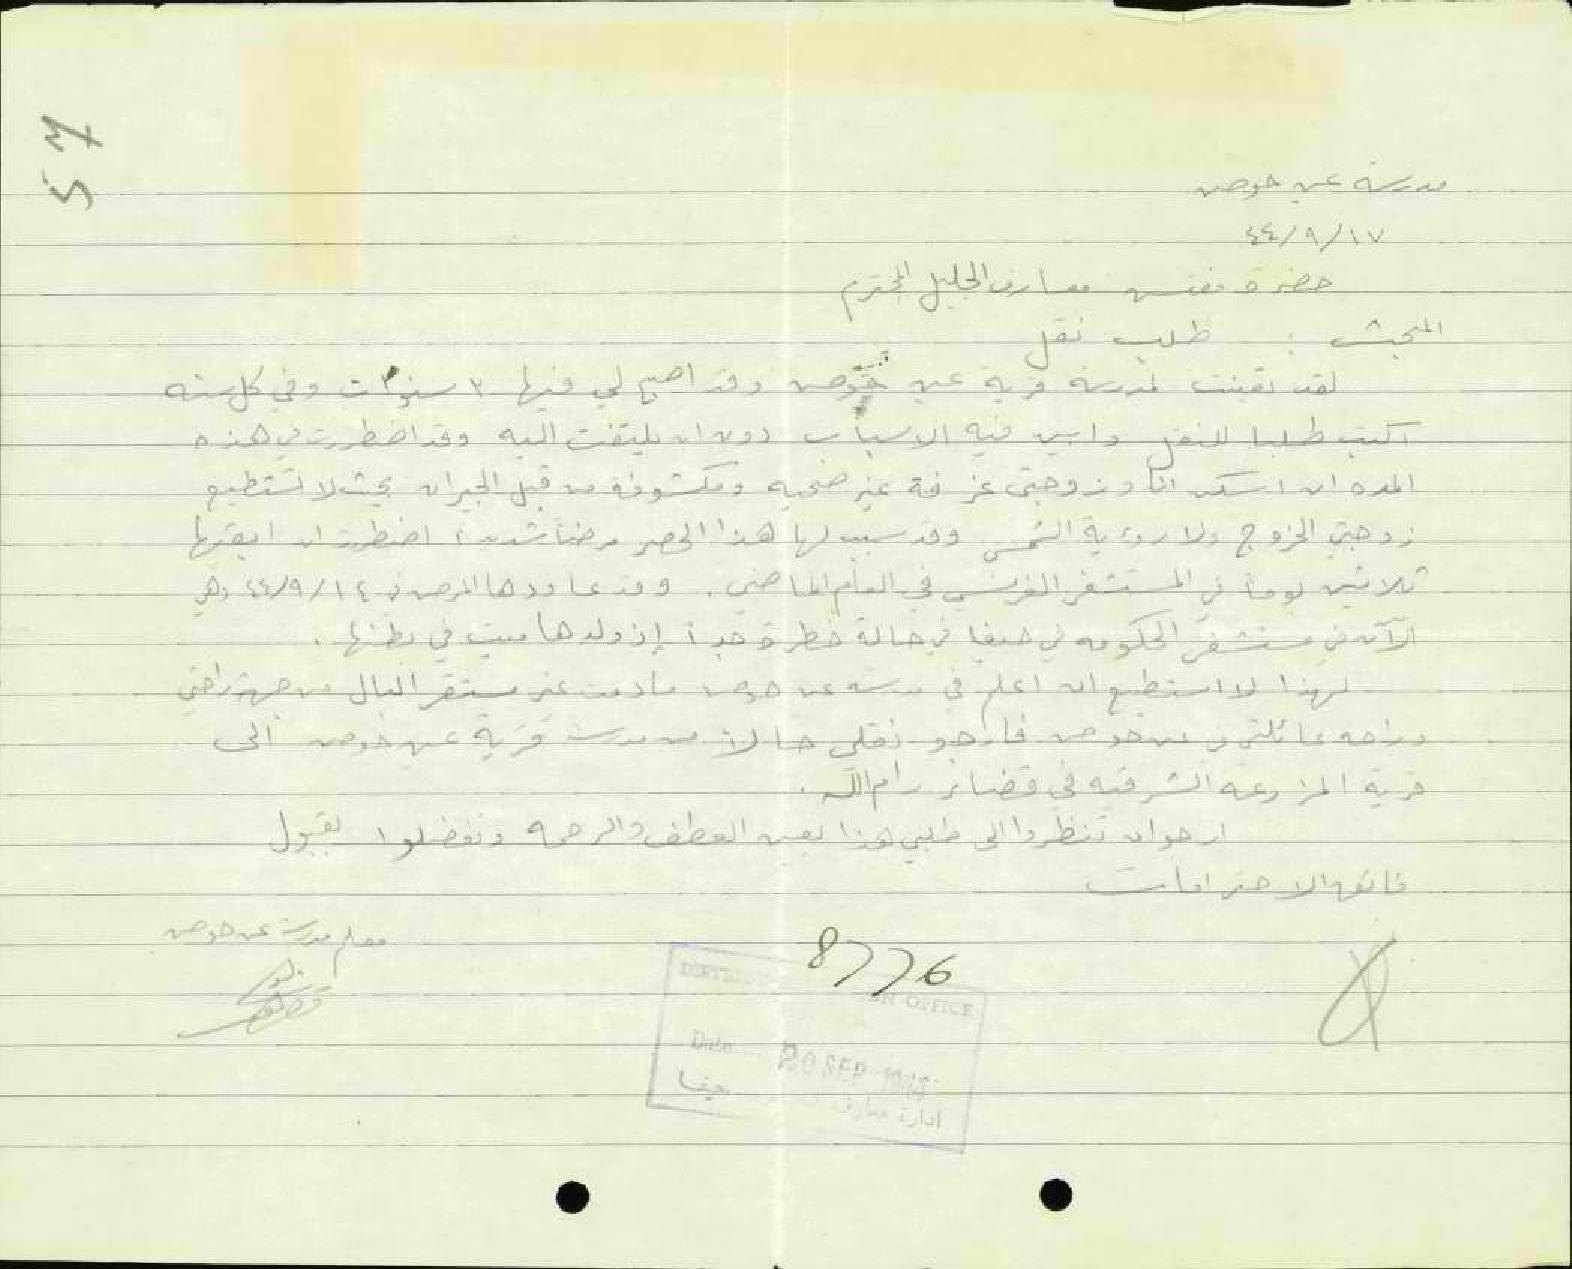 57
مدرسة عين حوض
٤٤/٩/١٧
حضرة مفتش معارف الجليل المحترم
المبحث : طلب نقل
لقد تعينت لمدرسة قرية عين حوض وقد اصبح لي فيها ٣ سنوات وفي كل سنه
اكتب طلبا للنقل وابين فيه الاسباب دون ان يلتفت اليه وقد اضطررت في هذه
المده ان اسكن انا وزوجتي غرفة غير صحيه ومكشوفة من قبل الجيران بحيث لا تستطيع
زوجتي الخروج ولا رؤية الشمس وقد سبب لها هذا الحصر مرضاً شديداً اضطررت ان ابقيها
ثلاثين يوماً في المستشفى الفرنسي في العام الماضي . وقد عاودها المرض في ٤٤/٩/١٤ وهي
الآن في مستشفى الحكومه في حيفا في حالة خطرة جداً إذ ولدها ميت في بطنها .
لهذا لا استطيع ان اعلم في مدرسة عين حوض ما دمت غير مستقر البال من جهة راحتي
وراحه عائلتي في عين حوض فارجو نقلي حالاً من مدرسة قرية عين حوض الى
قرية المزرعه الشرقيه في قضاء رام الله .
ارجو ان تنظروا الى طلبي هذا بعين العطف والرحمه وتفضلوا بقبول
فائق الاحترامات
معلم مدرسة عين حوض
8776
OFFICE
Date 20 SEP 1944
ادارة معارف حيفا